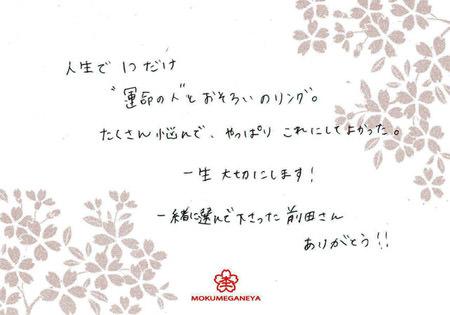 人生で 1つだけ
"運命の人"とおそろいのリング。
たくさん悩んで、やっぱり これにしてよかった。
一生 大切にします!
一緒に選んで下さった 前田さん
ありがとう!!
MOKUMEGANEYA